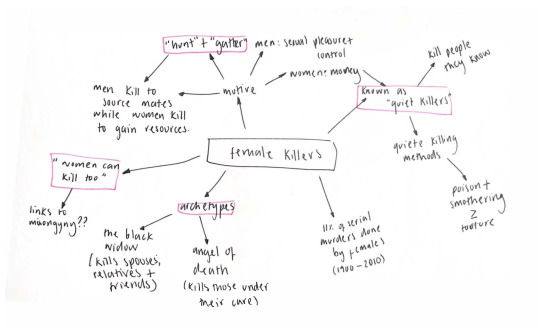 "hunt" + "gather"
men: sexual pleasure +
control
women: money
motive
men kill to
source mates
while women kill
to gain resources.
known as
"quiet killers"
kill people
they know
quiete killing
methods
poison +
smothering
≥
tooture
female killers
"women can
kill too"
links to
misongyny??
archetypes
the black
widow
(kills spouses,
relatives +
friends)
angel of
death
(kills those under
their care)
11% of serial
murders done
by females
(1900-2010)